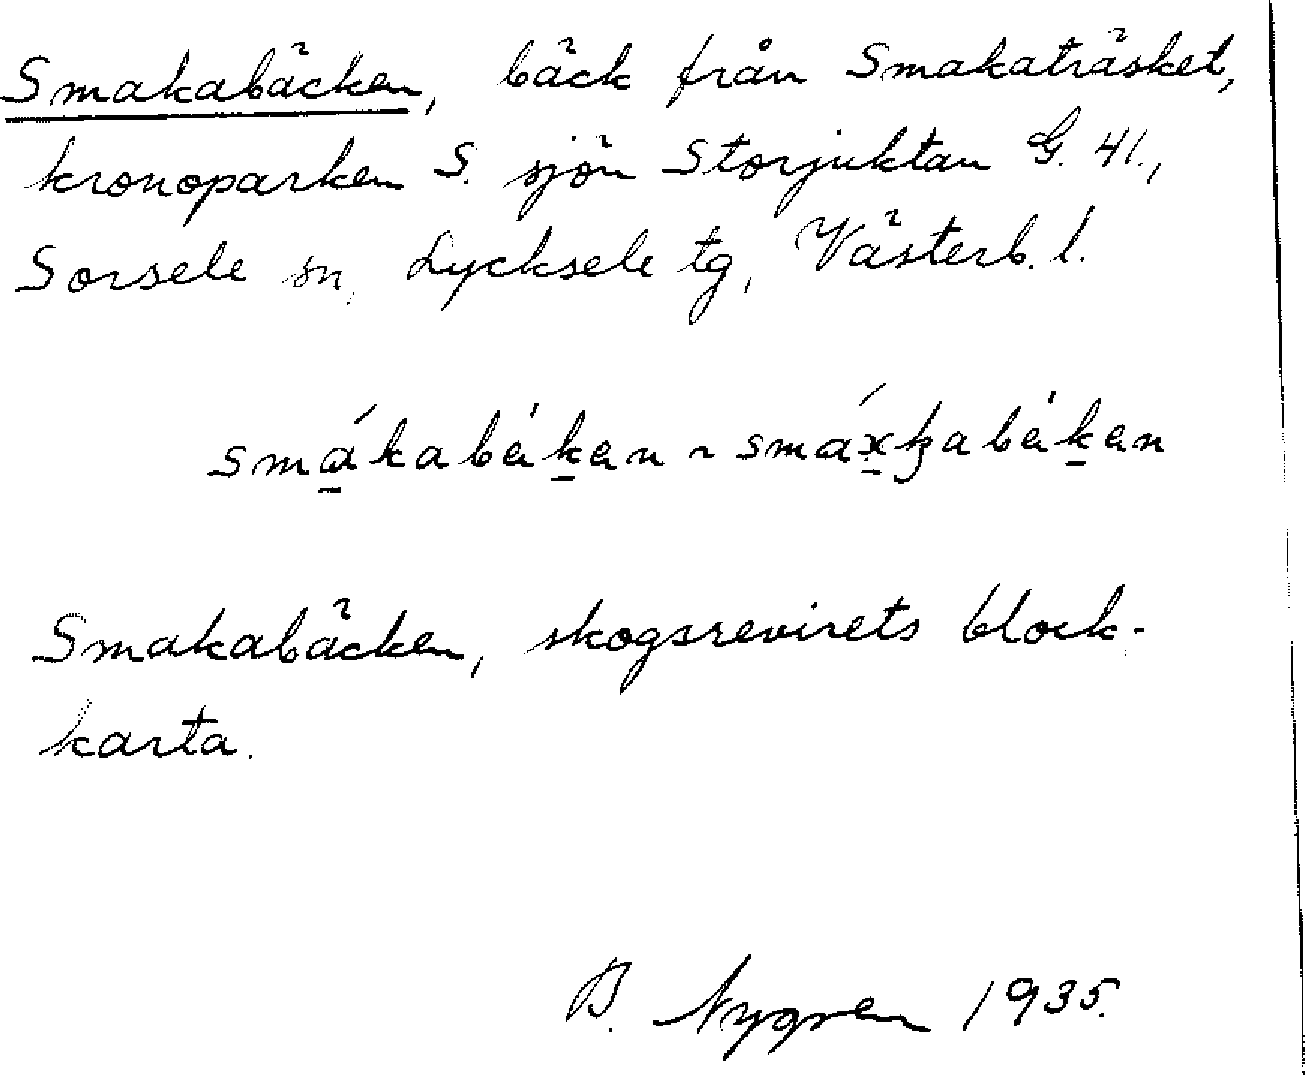 Smakabäcken, bäck från Smakaträsket,
kronoparken S. sjön Storjuktan G. 41.,
Sorsele sn, Lycksele tg, Västerb. l.
smákabäken ~ smáxkabäken
Smakabäcken, skogsrevirets block-
karta.
B. Nygren 1935.